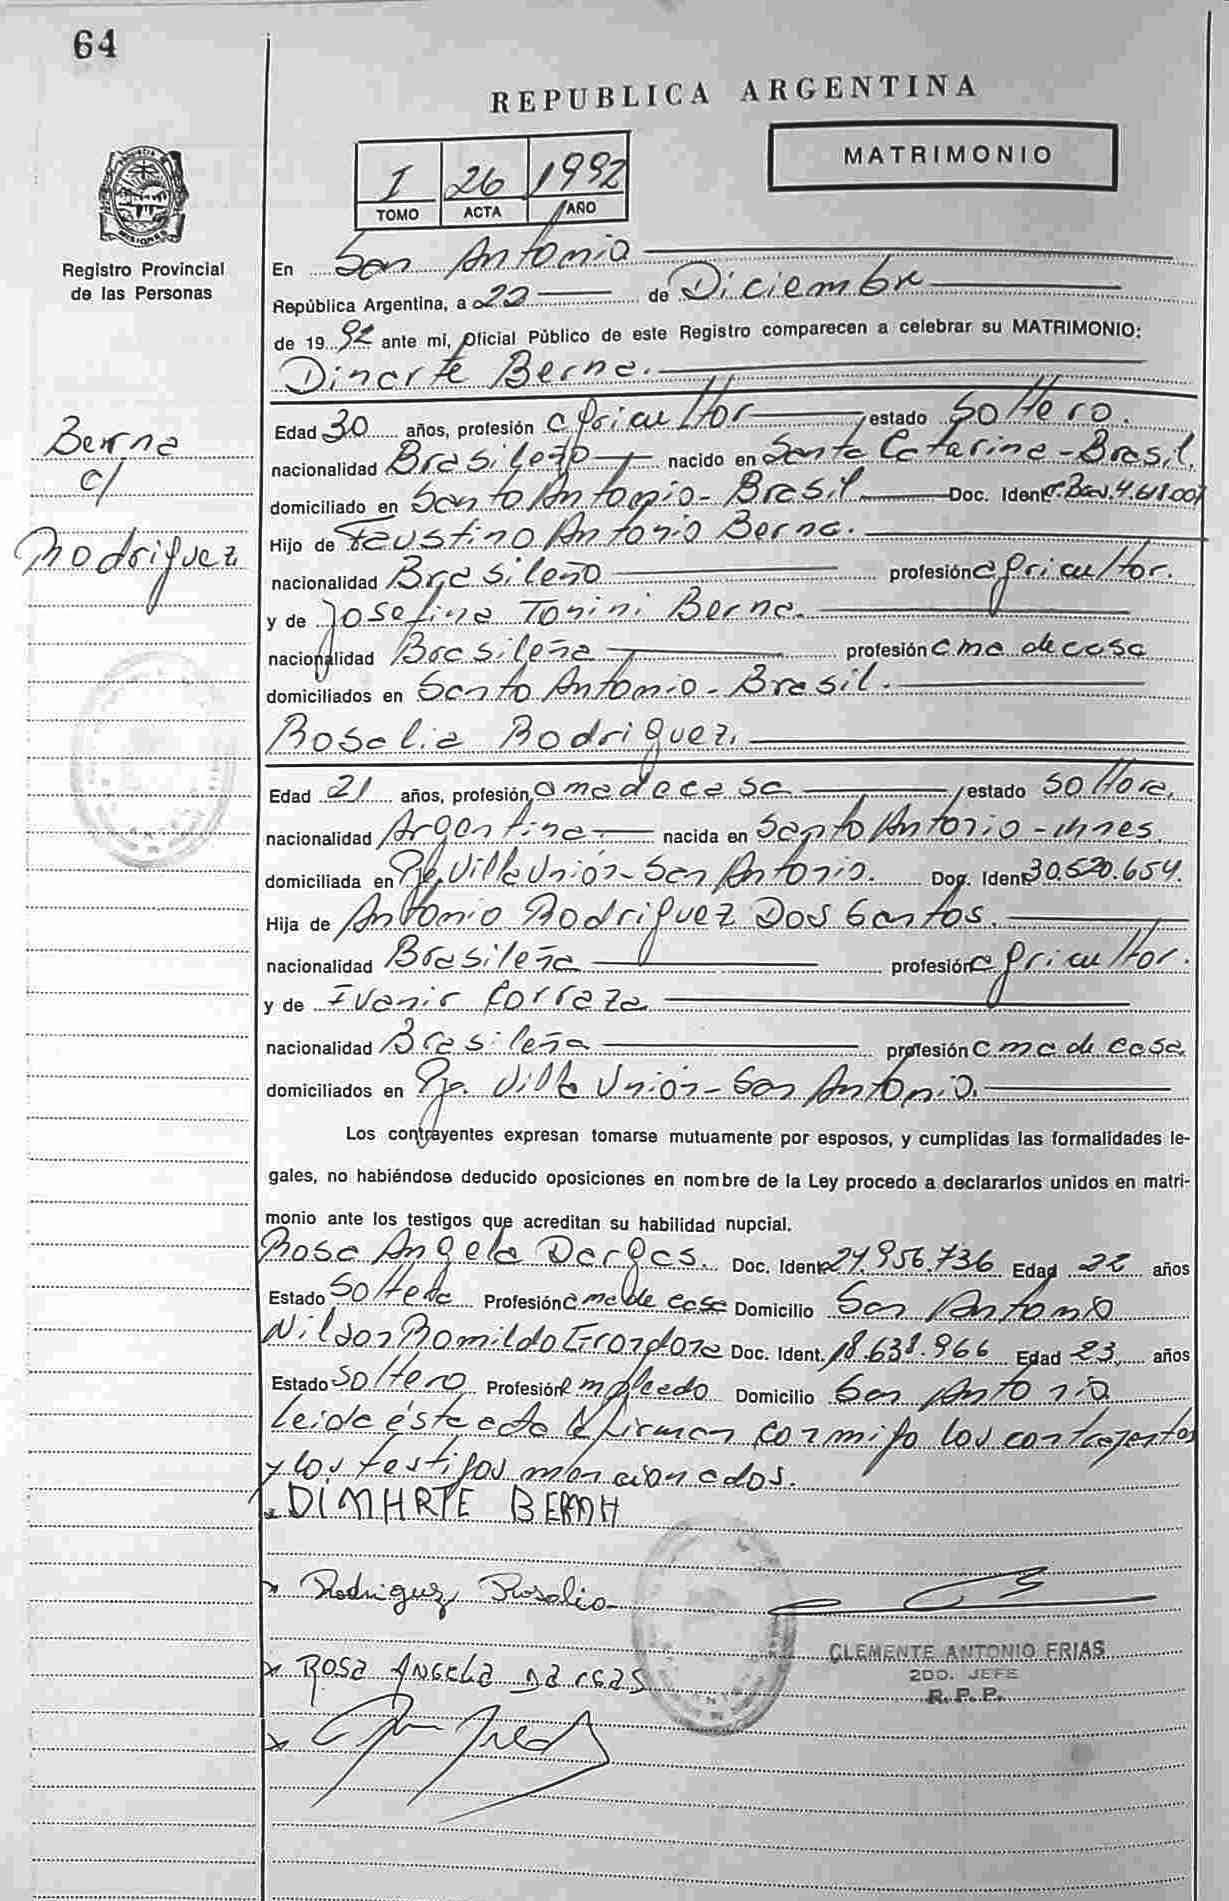 64
REPUBLICA ARGENTINA
MATRIMONIO
I 26 1992
TOMO ACTA AÑO
MISIONES
Registro Provincial
de las Personas
En San Antonio
República Argentina, a 22 de Diciembre
de 19 92 ante mi, Oficial Público de este Registro comparecen a celebrar su MATRIMONIO:
Dinarte Berna.
Edad 30 años, profesión agricultor estado Soltero.
nacionalidad Brasileño nacido en Santa Catarina - Brasil.
domiciliado en Santo Antonio - Brasil Doc. Ident. 4.618.007
Hijo de Faustino Antonio Berna.
nacionalidad Brasileño profesión agricultor.
y de Josefina Tonini Berna.
nacionalidad Brasileña profesión ama de casa
domiciliados en Santo Antonio - Brasil.
Berna
c/
Rodriguez
Rosalia Rodriguez.
Edad 21 años, profesión ama de casa estado Soltera.
nacionalidad Argentina nacida en Santo Antonio - Mnes.
domiciliada en Pje. Villa Unión - San Antonio. Doc. Ident. 30.520.654.
Hija de Antonio Rodriguez Dos Santos.
nacionalidad Brasileña profesión agricultor.
y de Ivanir Corraza
nacionalidad Brasileña profesión ama de casa
domiciliados en Pje. Villa Unión - San Antonio.
Los contrayentes expresan tomarse mutuamente por esposos, y cumplidas las formalidades le-
gales, no habiéndose deducido oposiciones en nombre de la Ley procedo a declararlos unidos en matri-
monio ante los testigos que acreditan su habilidad nupcial.
Rosa Angela Dargas. Doc. Ident. 24.956.736 Edad 22 años
Estado Soltera Profesión ama de casa Domicilio San Antonio
Nilson Romildo Doc. Ident. 18.638.966 Edad 23 años
Estado Soltero Profesión empleado Domicilio San Antonio
Leida ésta acta la firman conmigo los contrayentes
y los testigos mencionados.
DINARTE BERNA
Rodriguez Rosalia
CLEMENTE ANTONIO FRIAS
2DO. JEFE
R. P. P.
ROSA ANGELA DARGAS